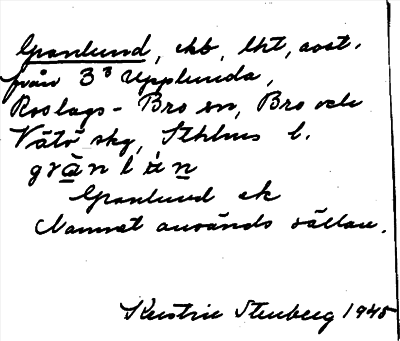 Granlund, ekb, lht, avst.
från 3⁸ Upplunda,
Roslags-Bro sn, Bro och
Vätö skg, Sthlms l.
Granlund ek
Namnet används sällan.
Kerstin Stenberg 1945